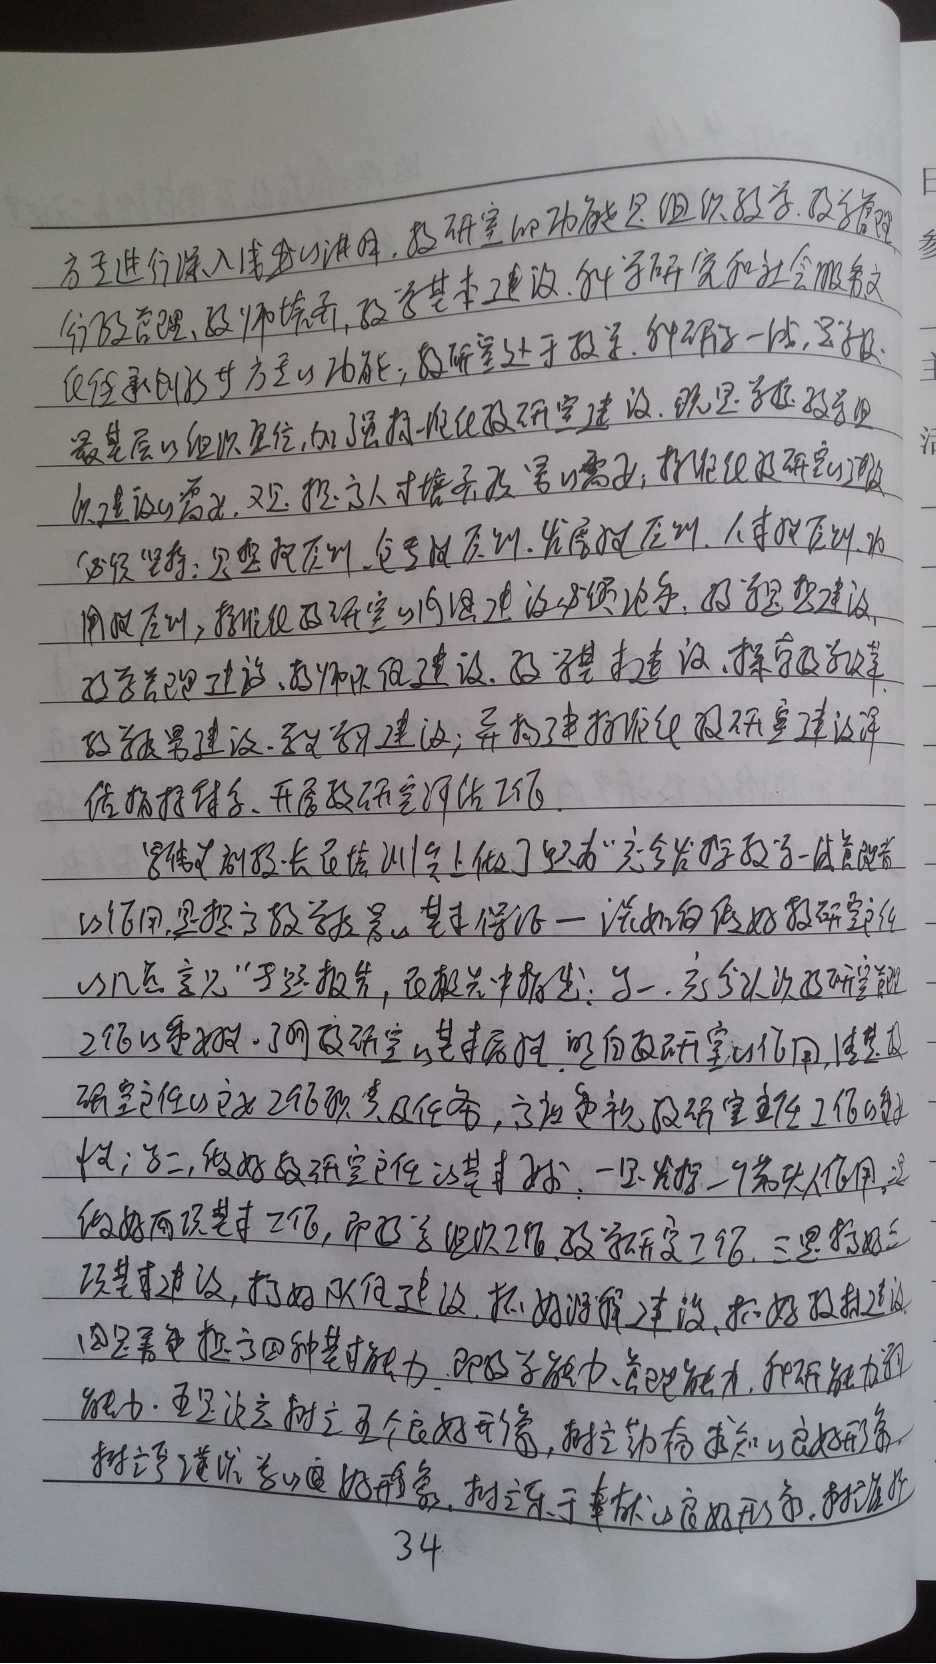 方面进行深入浅出的讲解。教研室的功能是组织教学、教学管理
行政管理、教师培养、教学基本建设、科学研究和社会服务文
化传承创新等方面的功能；教研室处于教学、科研第一线，是学校
最基层的组织单位，加强标准化教研室建设，既是学校教学组
织建设的需要，又是提高人才培养质量的需要；标准化教研室的建设
必须坚持：思想性原则、仓专性原则、发展性原则、人本性原则、功
用性原则；标准化教研室的内涵建设必须包含，教学思想建设、
教学管理建设、教师队伍建设、教学基本建设、探索教学改革、
教学质量建设、教学学习建设；并构建标准化教研室建设评
估指标体系、开展教研室评估工作。
副校长在培训会上做了题为“充分发挥教学一线管理者
的作用，是提高教学质量的基本保证——谈如何做好教研室主任
的几点意见”专题报告，在报告中指出：第一，充分认识教研室管理
工作的重要性。了解教研室的基本属性，明白教研室的作用，清楚教
研室主任的主要工作职责及任务，高度重视教研室主任工作的重要
性；第二，做好教研室主任的基本要求：一是发挥一个带头人作用，二是
做好两项基本工作，即教学组织工作、教学研究工作，三是抓好三
项基本建设，抓好队伍建设，抓好课程建设、抓好教材建设，
四是着重提高四种基本能力，即教学能力、管理能力、科研能力、
能力。五是注意树立五个良好形象，树立勤奋求知的良好形象，
树立严谨治学的良好形象，树立乐于奉献的良好形象，树立
34